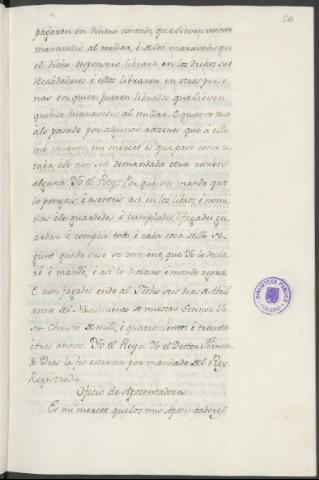 86
pagaren en dinero contado, que lieven veinte
maravedis al millar, è de los maravedis que
el dicho despensero librare en los dichos
Recabdadores è ellos libraren en otras perso-
nas en quien fueren librados que lieven
quince maravedis al millar. E quanto toca
à lo pasado por algunas razones que à ello
me mueven, mi merced es que pase como es-
taba, è le non sea demandada otra razon
alguna. Yo el Rey = Por que vos mando que
lo pongais è asenteis asi en los libros è nomi-
nas è lo guardedes è cumplades, è façades guar-
dar è complir todo è cada cosa dello se-
gunt que de suso se contiene, que Yo lo decla-
ré è mandé, è asi lo declaro è mando agora,
E non façades ende al. Fecho seis dias de Abril
año del Nascimiento de nuestro Señor Je-
su Christo de mill è quatrocientos è treinta
è tres años. Yo el Rey = Yo el Doctor Fernan-
do Diaz la fis escrivir por mandado del Rey.
Registrada
Oficio de Aposentadores
Es mi merced que los mis Aposentadores
BIBLIOTECA PUBLICA
TOLEDO